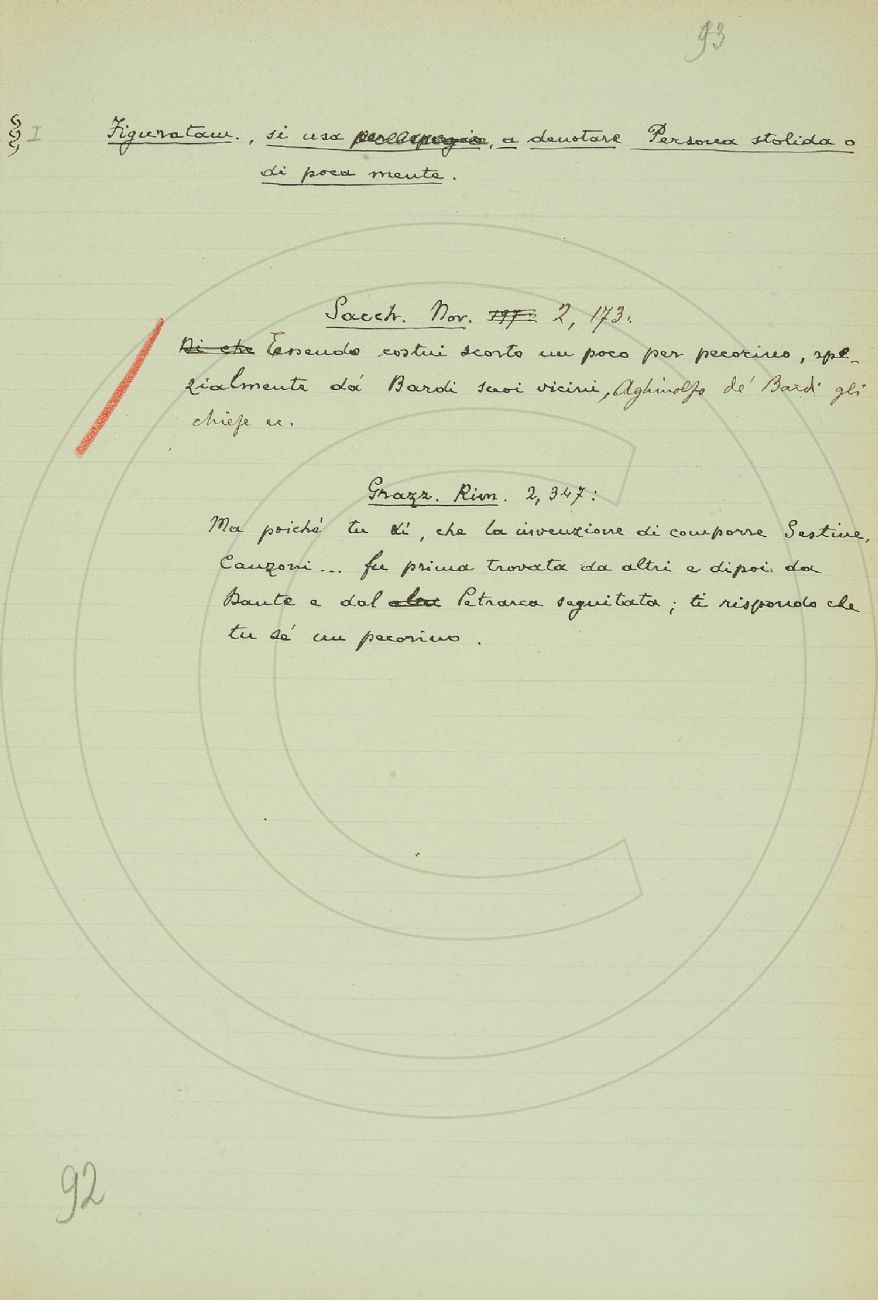 93
§§ I Figuratam., si usa, a denotare Persona stolida o
di poca mente.
Sacch. Nov. 2, 173:
Di che Essendo costui scorto un poco per pecorino, spe-
zialmente da' Bardi suoi vicini, Aghinolfo de' Bardi gli
chiese ec.
Grazz. Rim. 2, 347:
Ma poiché tu di', che la invenzione di comporre Sestine,
Canzoni... fu prima trovata da altri e dipoi da
Dante e dal Petrarca seguitata; ti rispondo che
tu sé un pecorino.
92